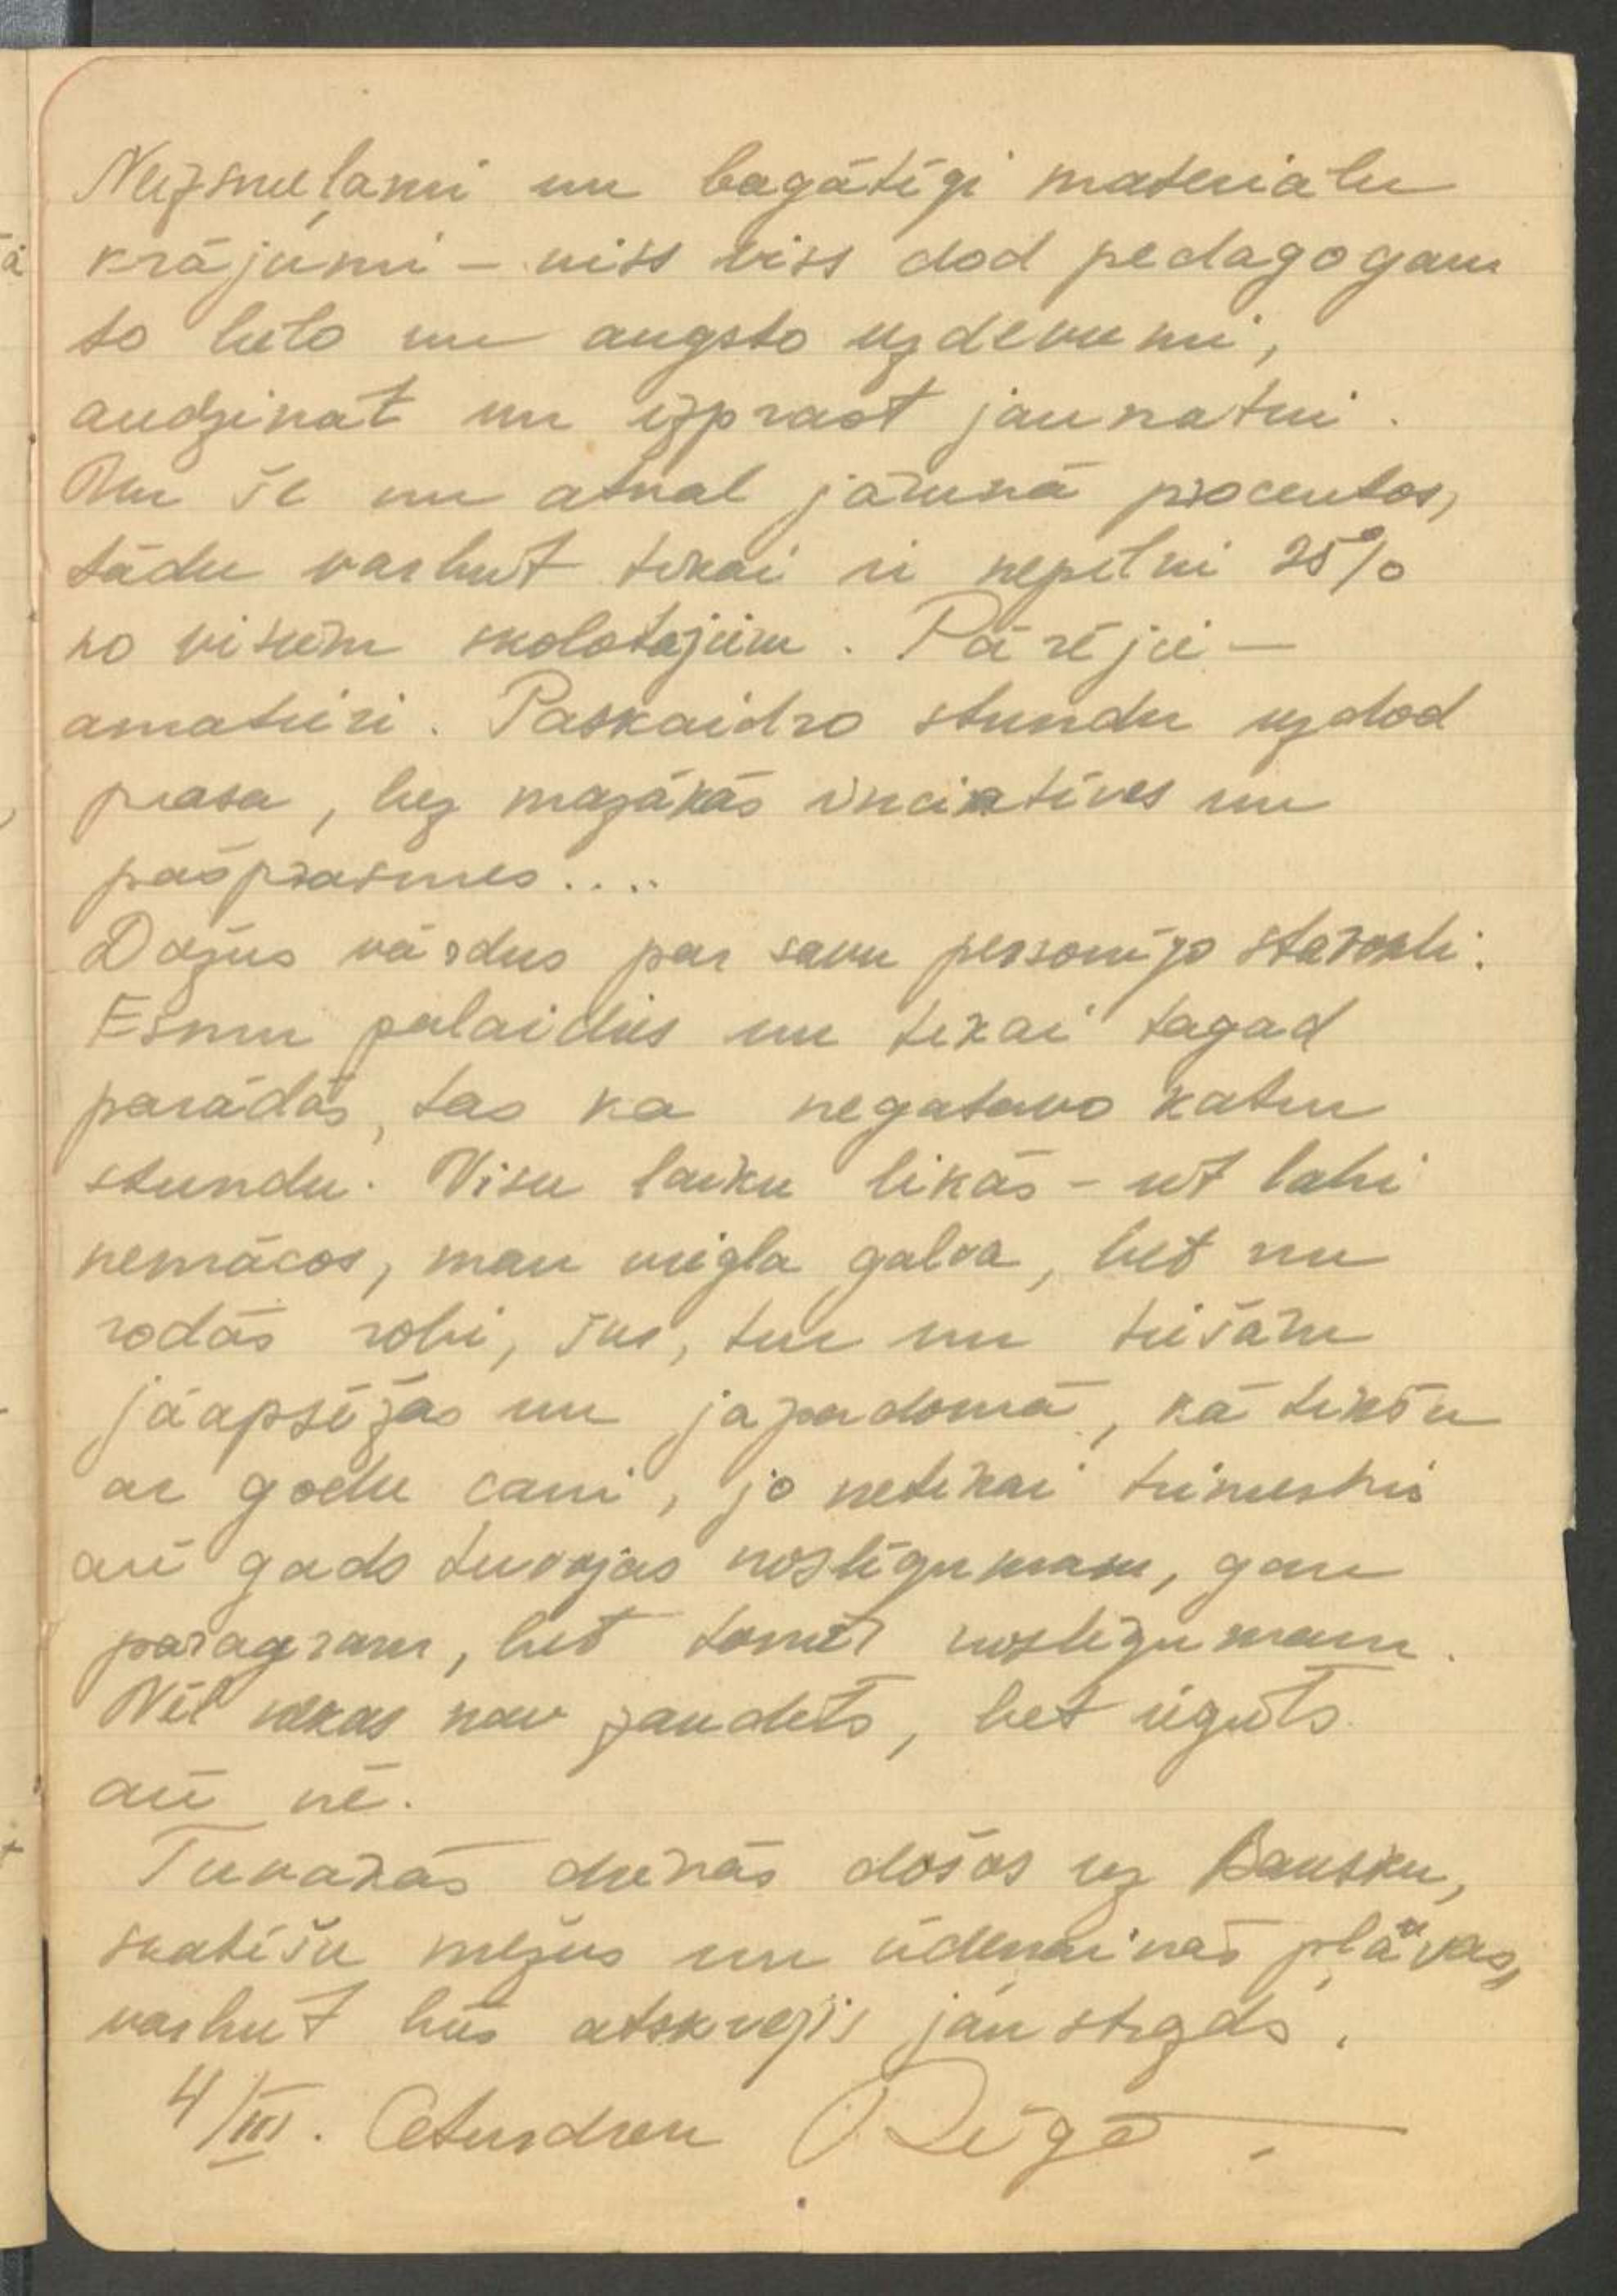 Neizsmeļami un bagātīgi materialu
krājumi – viss viss dod pedagogam
to lielo un augsto uzdevumi,
audzinat un izprast jaunatni.
Un še nu atval jārunā procentos,
tādu varbut tikai ir nepilni 25%
no visiem skolotajiem. Pārējie –
amatieri. Paskaidro stundu uzdod
prasa, bez mazākās inciatives un
pašprasmes....
Dažus vārdus par savu personīgo stavokli.
Esmu palaidies un tikai tagad
parādās, tas ka negatavo katru
stundu. Visu laiku likās – it labi
nemācos, man viegla galva, bet nu
rodās robi, šur, tur un tiešām
jāapsēžas un japadomā, kā tiktu
ar godu cauri, jo netikai trimestris
arī gads tuvojas noslēgumam, gan
paragram, bet tomēr noslēgumam.
Vēl nekas nav zaudēts, bet iegūts
arī nē.
Tuvakās dienās došos uz Bausku,
skatīšu mežus un ūdeņainās pļavas,
varbut būs atskrejis jau strazds.
4/III. Ceturdien Rīgā.